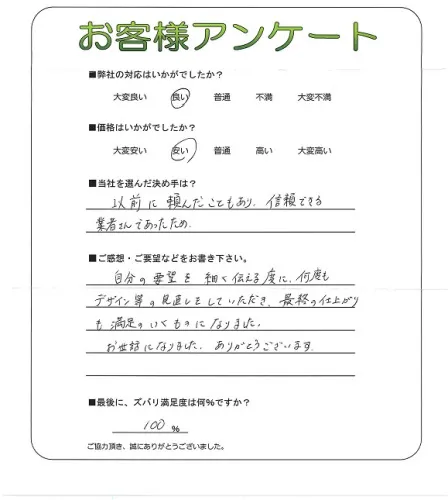 お客様アンケート
■弊社の対応はいかがでしたか？
大変良い 良い 普通 不満 大変不満
■価格はいかがでしたか？
大変安い 安い 普通 高い 大変高い
■当社を選んだ決め手は？
以前に頼んだこともあり、信頼できる
業者さんであったため。
■ご感想・ご要望などをお書き下さい。
自分の要望を細く伝える度に、何度も
デザイン等の見直しをしていただき、最終の仕上がり
も満足のいくものになりました。
お世話になりました。ありがとうございます。
■最後に、ズバリ満足度は何%ですか？
100 %
ご協力頂き、誠にありがとうございました。